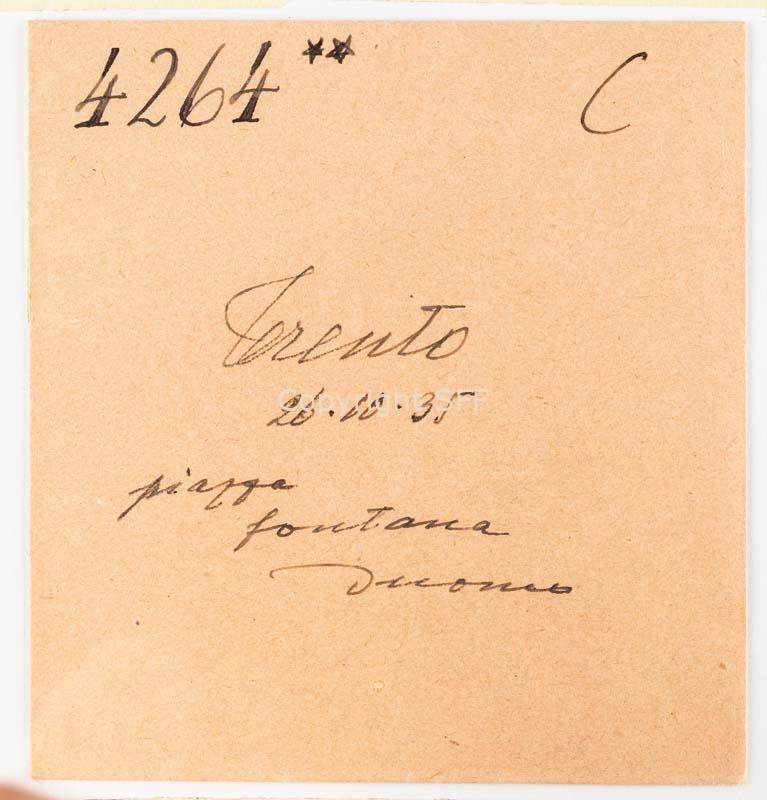 4264** C
Trento
26.10.35
Copyright SFF
piazza
fontana
Duomo